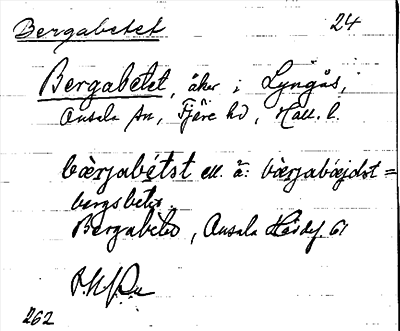 Bergabetet 24
Bergabetet, åker i Lyngås,
Onsala sn, Fjäre hd, Hall. l.
bærjabétst ell. ä: bærjabæjdst =
bergsbete.
Bergabetet, Onsala 61
262